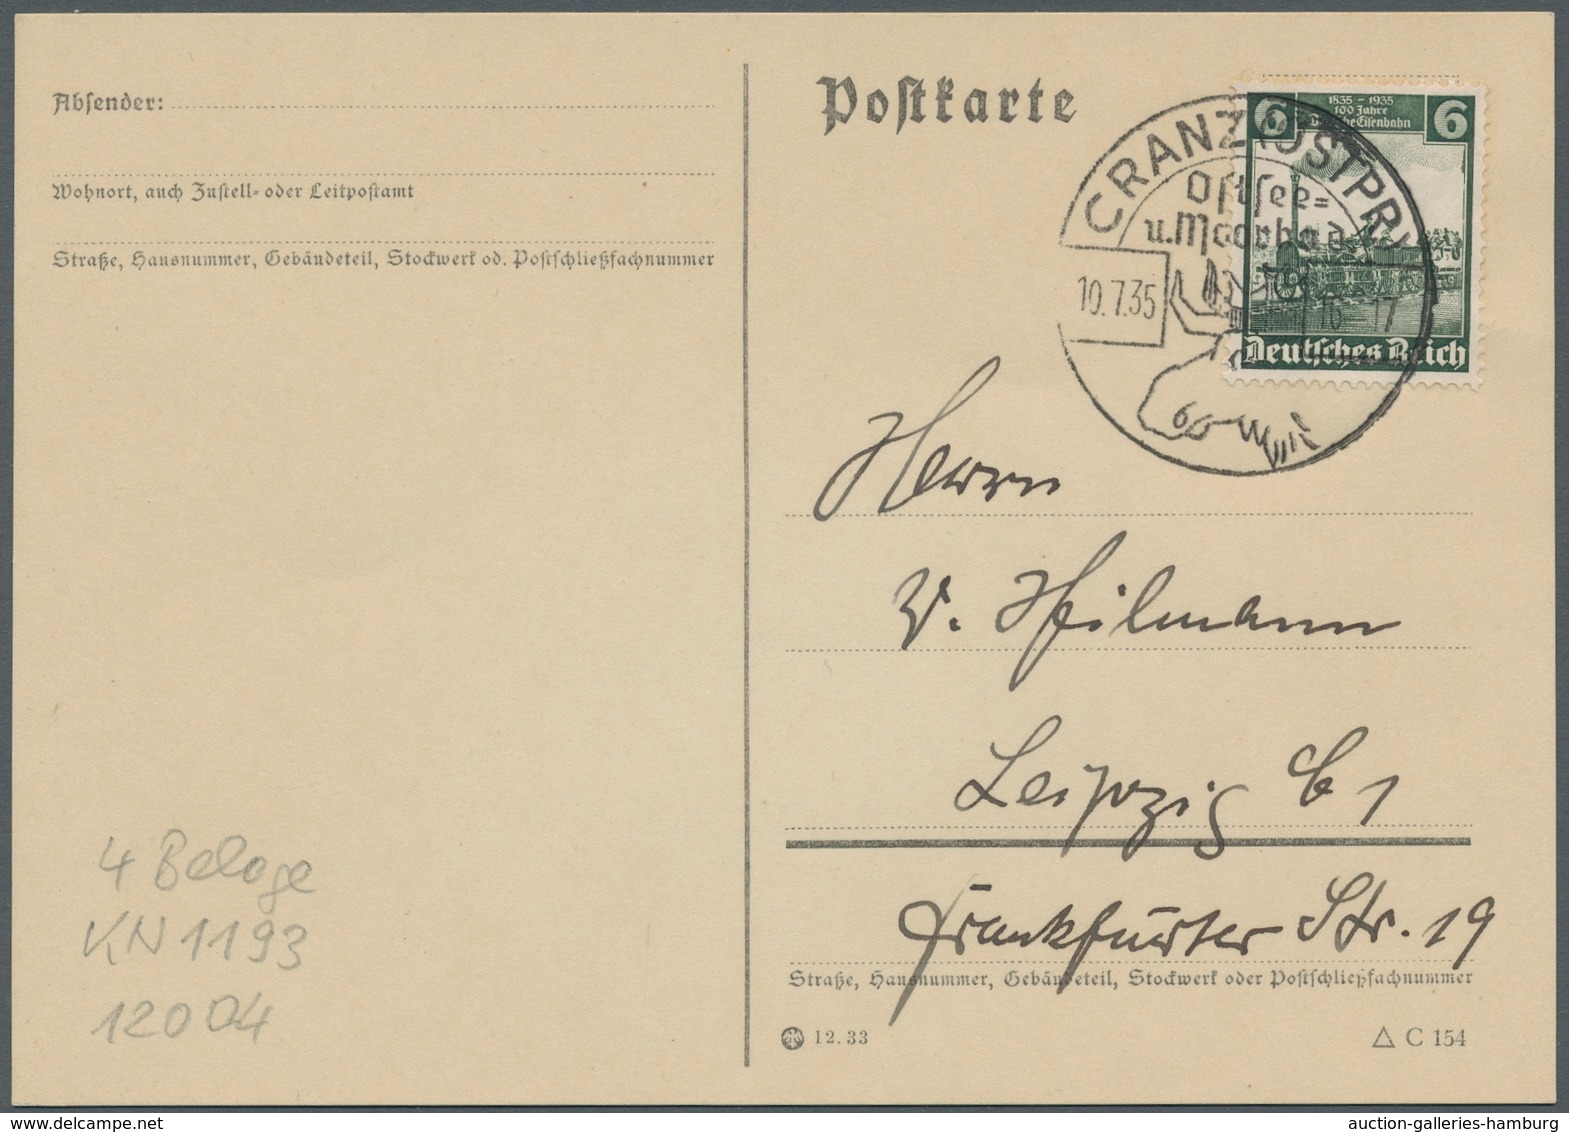 Absender:
Wohnort, auch Zustell- oder Leitpostamt
Straße, Hausnummer, Gebäudeteil, Stockwerk od. Postschließfachnummer
4 Belege
KN 1193
12004
Postkarte
CRANZ (OSTPR)
Ostsee=
u. Moorbad
10.7.35
16-17
6
1835-1935
100 Jahre
Deutsche Eisenbahn
6
Deutsches Reich
Herrn
V. Heilmann
Leipzig C 1
Frankfurter Str. 19
Straße, Hausnummer, Gebäudeteil, Stockwerk oder Postschließfachnummer
12.33
C 154
auction-galleries-hamburg